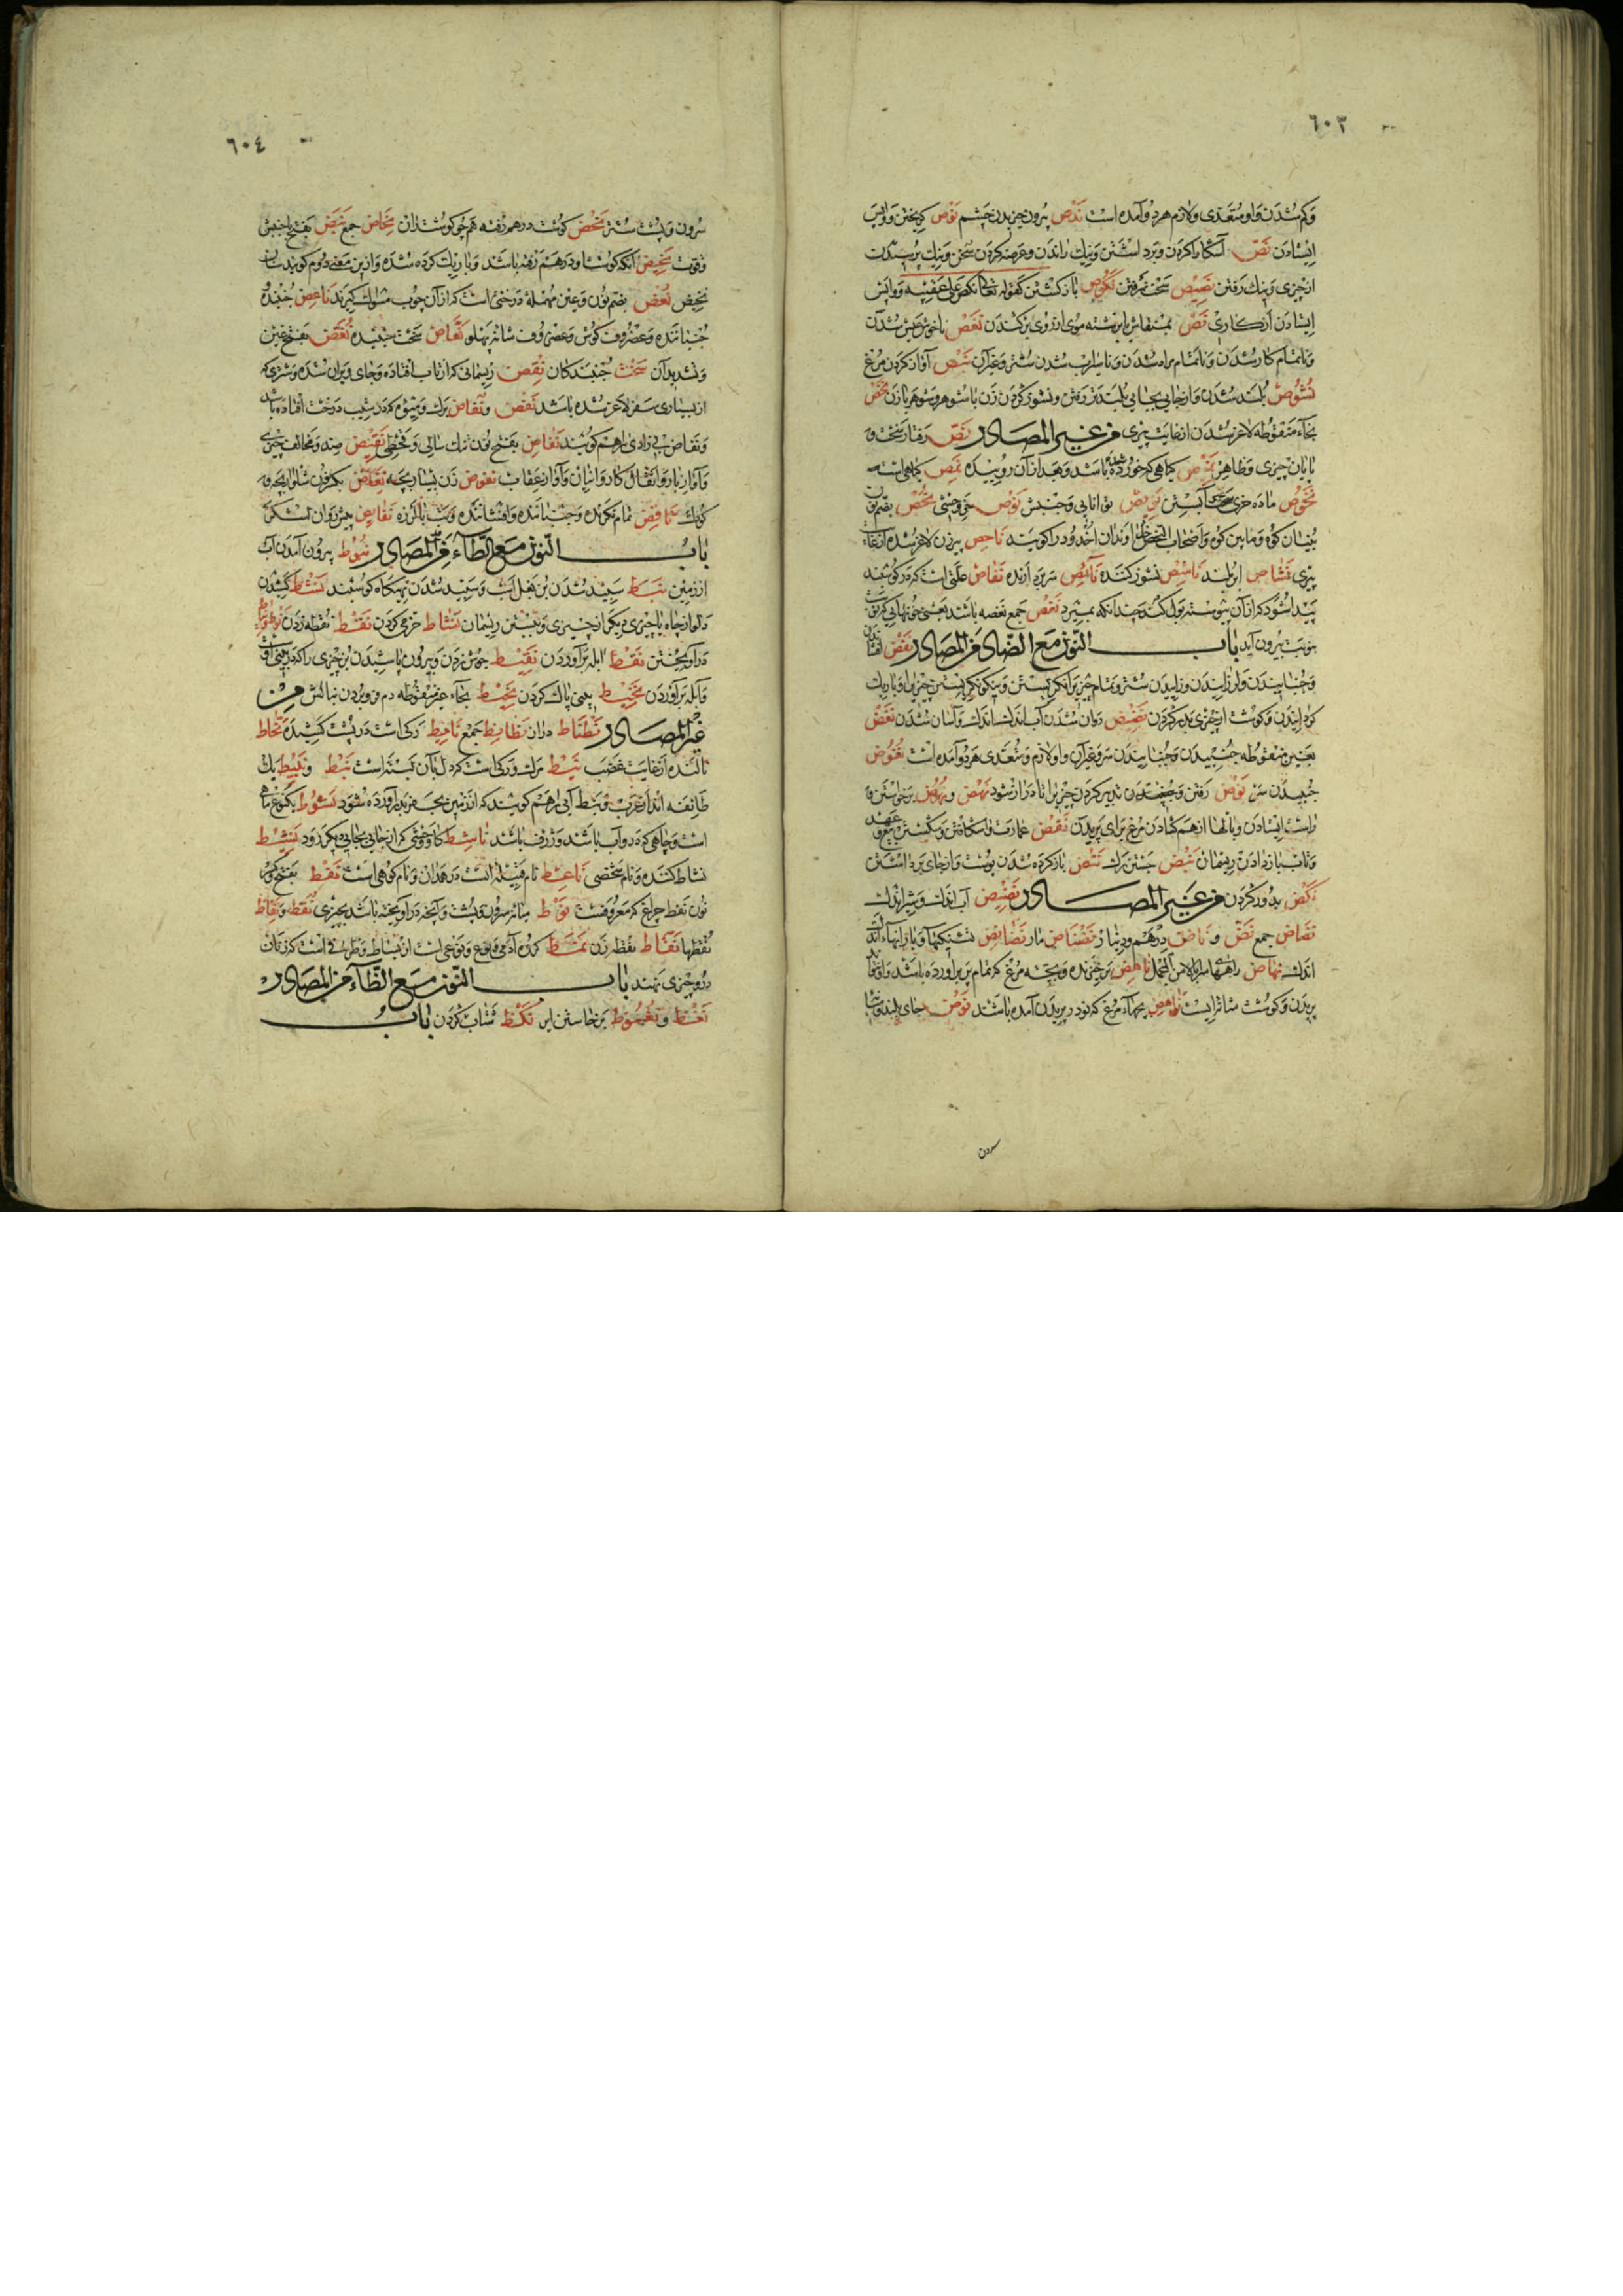 ٦٠٣
وکم شدن واو متعدی ولازم هر دو آمده است نَدْص بیرون خزیدن چشم نَوْص کریختن و واپس
ایستادن نَصّ آشکارا کردن و برداشتن و نیک راندن و عرضه کردن سخن و نیک پرسیدن
از چیزی و نیک رفتن نَصِیْص سخت رفتن نُکُوْص باز کشتن کقوله تعالی نکص علی عقبیه و واپس
ایستادن از کاری نَمْص بمنقاش ابرشته موی از روی برکندن نَغَص ناخوش عیش شدن
و ناتمام کار شدن و ناتمام مراد شدن و ناسیراب شدن شتر و غیر آن نَبْص آواز کردن مرغ
نُشُوْص بلند شدن و از جایی بجایی بلند تر رفتن و نشوز کردن زن با شوهر و شوهر با زن نَخْص
بخاء منقوطه لاغر شدن از غایت پیری من غیر المصادر نَصّ رفتار سخت و
پایان چیزی و ظاهر نَمَص کیاهی که خورده شده باشد و بعد از آن روییده نَمِیص کیاهی است
نَحُوْص ماده خری آبستن نَوِیْص توانایی و جنبش نَوْص خر وحشی نُحْص بضم نون
بنیان کوه و مابین کوه و اصحاب النحص خداوندان اخدود را کویند نَاخِص پیر زن لاغر شده از غایت
پیری نَشَاص ابر بلند نَاشِص نشوز کننده نَائِص سر بردارنده نُفَاص علتی است که در کوسفند
پیدا شود که از آن پیوسته بول کند چندانکه بمیرد نُغَص جمع نغصه باشد یعنی خونهایی که نوبت
بنوبت بیرون آید باب النون مع الضاد من المصادر نَفْض افشاندن
و جنبانیدن و لرزانیدن و زاییدن شتر و تمام چیزیرا نکریستن و نیکو نکریستن چیزیرا و باریک
کردانیدن و کوشت از چیزی بدر کردن نَضِیْض روان شدن آب اندک اندک و آسان شدن نَغْض
بغین منقوطه جنبیدن و جنبانیدن سر و غیر آن واو لازم و متعدی هر دو آمده است نُغُوض
جنبیدن سر نَوْض رفتن و جنبیدن و تدبیر کردن چیزیرا تا دراز شود نَهْض و نُهُوض برخواستن و
راست ایستادن و بالها از هم کشادن مرغ برای پریدن نَقْض عمارت واشکافتن و شکستن بیع و عهد
و تاب باز دادن ریسمان نَبْض جستن رک نَتْض باز کرده شدن پوست و از جای برداشتن
نَکْض بدور کردن من غیر المصادر نَضِیْض آب اندک و شیر اندک
نِضَاض جمع نَضّ و نَاضّ درهم و دینار نَضْنَاض مار نَضَائِض تشنکیها و بارانهاء اندک
اندک نِهَاض راهها سر بالا من المجمل نَاهِض برخیزنده و بچه مرغ که تمام پر برآورده باشد و از برای
پریدن و کوشت شانه راست نَوَاهِض بچهاء مرغ که نو در پریدن آمده باشند نَوْض جای بلند و میان
سرون
٦٠٤
سرون و پشت شتر نَحْض کوشت درهم رفته همچو کوشت ران نِحَاض جمع نَبَض بفتح با جنبش
و قوت نَحِیْض آنکه کوشت او درهم رفته باشد و باریک کرده شده و ازین معنی دوم کویند سنان
نحیض نُعْض بضم نون و عین مهمله درختی است که از آن چوب مسواک کیرند نَاغِض جنبنده
جنباننده و غضروف کوش و غضروف شانه پهلو نَغَّاض سخت جنبیده نُغَّض بفتح غین
و تشدید آن سخت جنبندکان نِقْض ریسمانی که از تاب افتاده و جای ویران شده و شتری که
از بسیاری سفر لاغر شده باشد نَفَض و نُفَاض برک و میوه که در شیب درخت افتاده باشد
و نفاض بی زادی را هم کویند نَفَاض بفتح نون تنک سالی و قحطی نَقِیْض ضد و مخالف چیزی
و آواز بار و انتقال کاروانیان و آواز عقاب نَفُوض زن بسیار بچه نِفَاض بکسر نون شلوار بچه
کودک نَافِض تمام نکرنده و جنباننده و افشاننده و تب با لرزه نَفَائِض پیش روان لشکر
باب النون مع الطاء من المصادر نُبُوْط بیرون آمدن آب
از زمین نَبَط سپید شدن بن بغل اسب و سپید شدن تهیکاه کوسفند نَشْط کشیدن
دلو از چاه یا چیزی دیکر از چیزی و بستن ریسمان نَشَاط خرمی کردن نَقْط نقطه زدن نَوْط
درآویختن نَفْط ابله برآوردن نَفِیْط جوش زدن و بیرون پاشیدن بن چیزی را که در بینی افتد
و آبله برآوردن نَخْیط بینی پاک کردن نَحِیْط بحاء غیر منقوطه دم فرو بردن نالش من
غیر المصادر نَطْنَاط دراز نَطَانِط جمع نَائِط رکی است در پشت کشیده نَحَّاط
نالنده از غایت غضب نَیْط مرک و رکی است که دل بآن بسته است نَبَط و نَبِیْط یک
طایفه اند از عرب و نبط آبی را هم کویند که از زمین بحفر بدر آورده شود نَشُوْط یکنوع ماهی
است و چاهی که دور آب باشد و ژرف باشد نَاشِط کاو وحشی که از جایی بجایی دیکر رود نَشِیْط
نشاط کننده و نام شخصی نَاعِط نام قبیله است در همدان و نام کوهی است نَفْط بفتح و کسر
نون نفط چراغ که معروفست نَوْط میان سرون و پشت و آنچه در آویخته باشد بچیزی نُقَط و نِقَاط
نقطها نَقَّاط نقطه زن نَمَط کروه آدمی و نوع و نوعی است از بساط و طریقه است که زنان
در و چیزی نهند باب النون مع الظاء من المصادر
نَعْظ و نُعُوْظ برخاستن ایر نَکْظ شتاب کردن باب